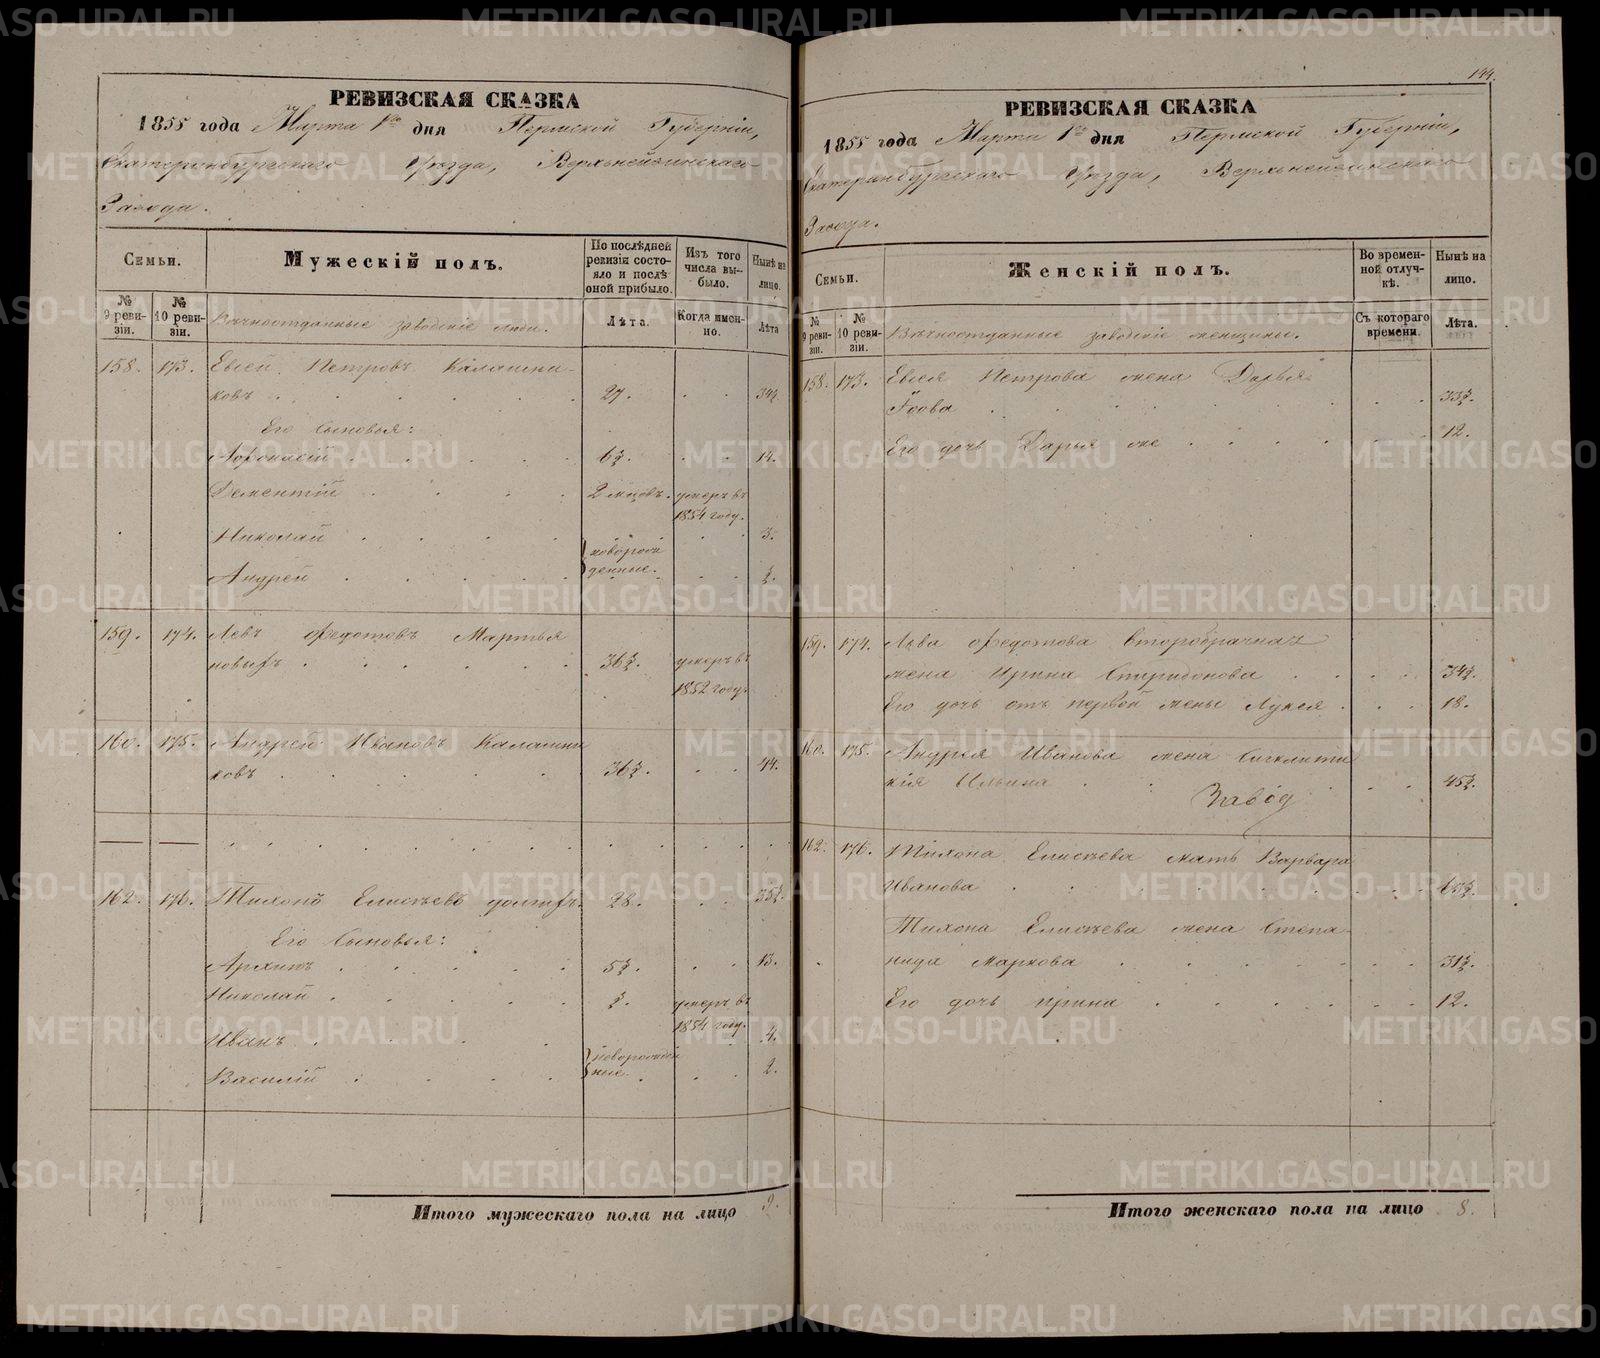 РЕВИЗСКАЯ СКАЗКА
1855 года Марта 1го дня Пермской Губерніи,
Екатеринбургскаго Уѣзда, Верхънейвинскаго
Завода.
Семьи.
Мужескій полъ.
По послѣдней ревизіи состояло и послѣ оной прибыло.
Изъ того числа выбыло.
Нынѣ на лицо.
№ 9 ревизіи.
№ 10 ревизіи.
Вѣчноотданные заводскіе люди.
Лѣта.
Когда именно.
Лѣта
158. 173. Евсей Петровъ Калашни-
ковъ 27. 34½
Его Сыновья:
Афонасій 6½. 14.
Дементій 2 мцовъ. умеръ въ
1854 году.
Николай 3.
новорож
Андрей денные. ½.
159. 174. Левъ Федотовъ Мартья
новыхъ 36½. умеръ въ
1852 году.
160. 175. Андрей Ивановъ Калашни
ковъ 36½. 44.
162. 176. Тихонъ Елисѣевъ 28. 35½.
Его Сыновья:
Архипъ 5½. 13.
Николай ½. умеръ въ
1854 году.
Иванъ 4.
новорожден
Василій ные. 2.
Итого мужескаго пола на лицо 9.
144.
РЕВИЗСКАЯ СКАЗКА
1855 года Марта 1го дня Пермской Губерніи,
Екатеринбургскаго Уѣзда, Верхънейвинскаго
Завода.
Семьи.
Женскій полъ.
Во временной отлучкѣ.
Нынѣ на лицо.
№ 9 ревизіи.
№ 10 ревизіи.
Вѣчноотданные заводскіе женщины.
Съ котораго времени.
Лѣта.
158. 173. Евсея Петрова жена Дарья
33½.
Его дочь Дарья же 12.
159. 174. Льва Федотова второбрачная
жена Ирина Спиридонова 34½.
Его дочь отъ первой жены Лукея 18.
160. 175. Андрея Иванова жена Сигклити
кія Ильина 45½.
Завод
162. 176. Тихона Елисѣева мать Варвара
Иванова 65½.
Тихона Елисѣева жена Степа-
нида Маркова 31½.
Его дочь Ирина 12.
Итого женскаго пола на лицо 8.
METRIKI.GASO-URAL.RU